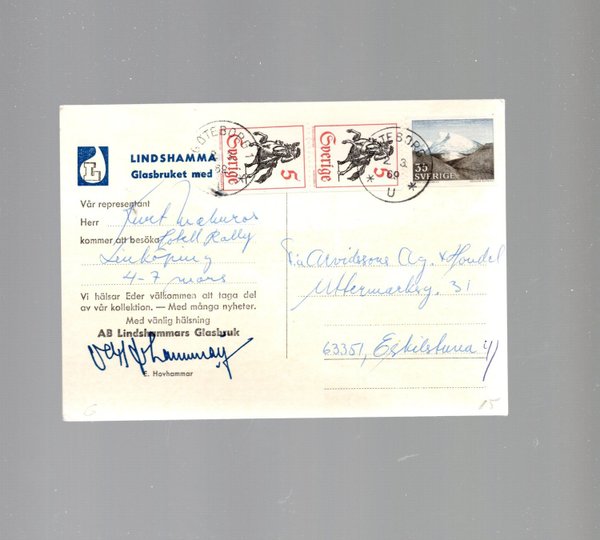 LINDSHAMMA
Glasbruket med
Vår representant
Herr Kurt
kommer att besöka Hotell Rally
Linköping
4-7 mars
Vi hälsar Eder välkommen att taga del
av vår kollektion. — Med många nyheter.
Med vänlig hälsning
AB Lindshammars Glasbruk
E. Hovhammar
GÖTEBORG
2. 3.
69
U
Sverige
5
Sverige
5
35
SVERIGE
Fa Arvidssons Ag. & Handel
Uttermarksg. 31
63351, Eskilstuna
15